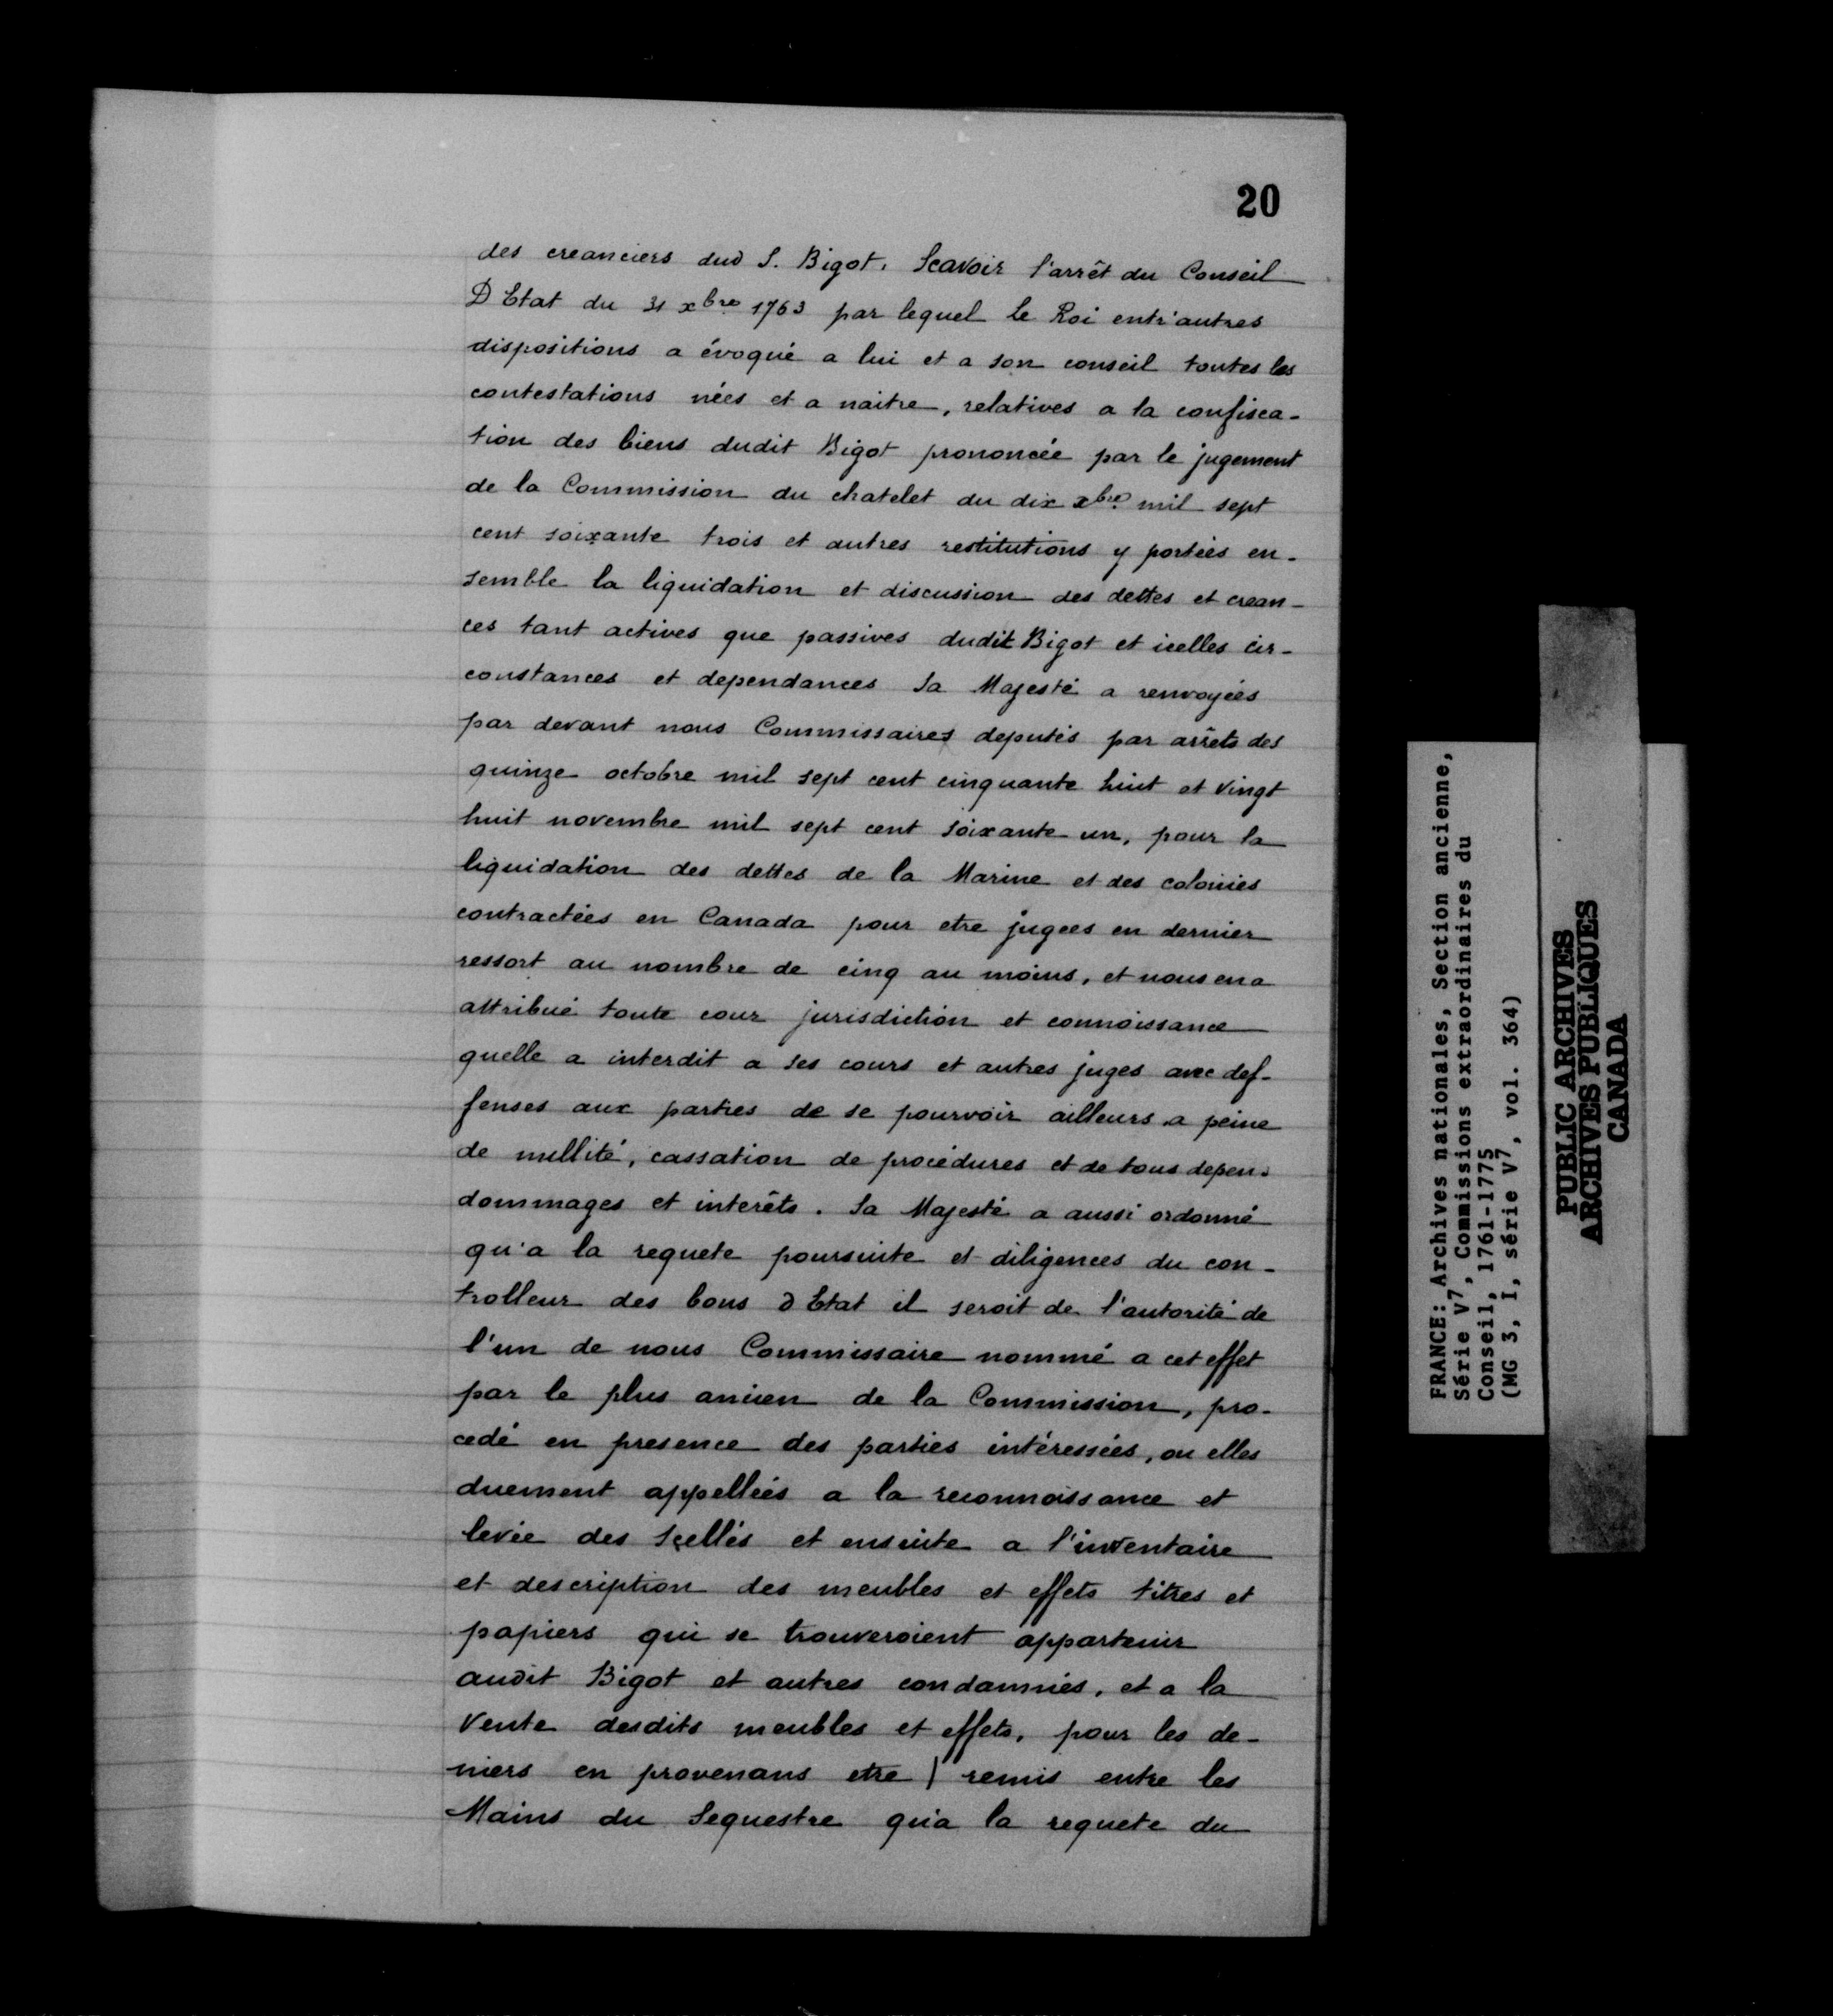 20
des creanciers dud S. Bigot. Scavoir l'arrêt du Conseil
D Etat du 31 xbre 1763 par lequel le Roi entr'autres
dispositions a évoqué a lui et a son conseil toutes les
contestations nées et a naitre, relatives a la confisca-
tion des biens dudit Bigot prononcée par le jugement
de la Commission du chatelet du dix xbre mil sept
cent soixante trois et autres restitutions y portées en-
semble la liquidation et discussion des dettes et crean-
ces tant actives que passives dudit Bigot et icelles cir-
constances et dependances Sa Majesté a renvoyées
par devant nous Commissaires deputés par arrêts des
quinze octobre mil sept cent cinquante huit et vingt
huit novembre mil sept cent soixante un, pour la
liquidation des dettes de la Marine et des colonies
contractées en Canada pour etre jugees en dernier
ressort au nombre de cinq au moins, et nous en a
attribué toute cour jurisdiction et connoissance
quelle a interdit a ses cours et autres juges avec def-
fenses aux parties de se pourvoir ailleurs a peine
de nullité, cassation de procédures et de tous depens
dommages et interêts. Sa Majesté a aussi ordonné
qu'a la requete poursuite et diligences du con-
trolleur des bons d Etat il seroit de l'autorité de
l'un de nous Commissaire nommé a cet effet
par le plus ancien de la Commission, pro-
cedé en presence des parties intéressées, ou elles
duement appellées a la reconnoissance et
levée des scellés et ensuite a l'inventaire
et description des meubles et effets titres et
papiers qui se trouveroient appartenir
audit Bigot et autres condamnés, et a la
Vente desdits meubles et effets, pour les de-
niers en provenans etre ) remis entre les
Mains du Sequestre qu'a la requete du
FRANCE: Archives nationales, Section ancienne,
Série V7, Commissions extraordinaires du
Conseil, 1761-1775
(MG 3, I, série V7, vol. 364)
PUBLIC ARCHIVES
ARCHIVES PUBLIQUES
CANADA